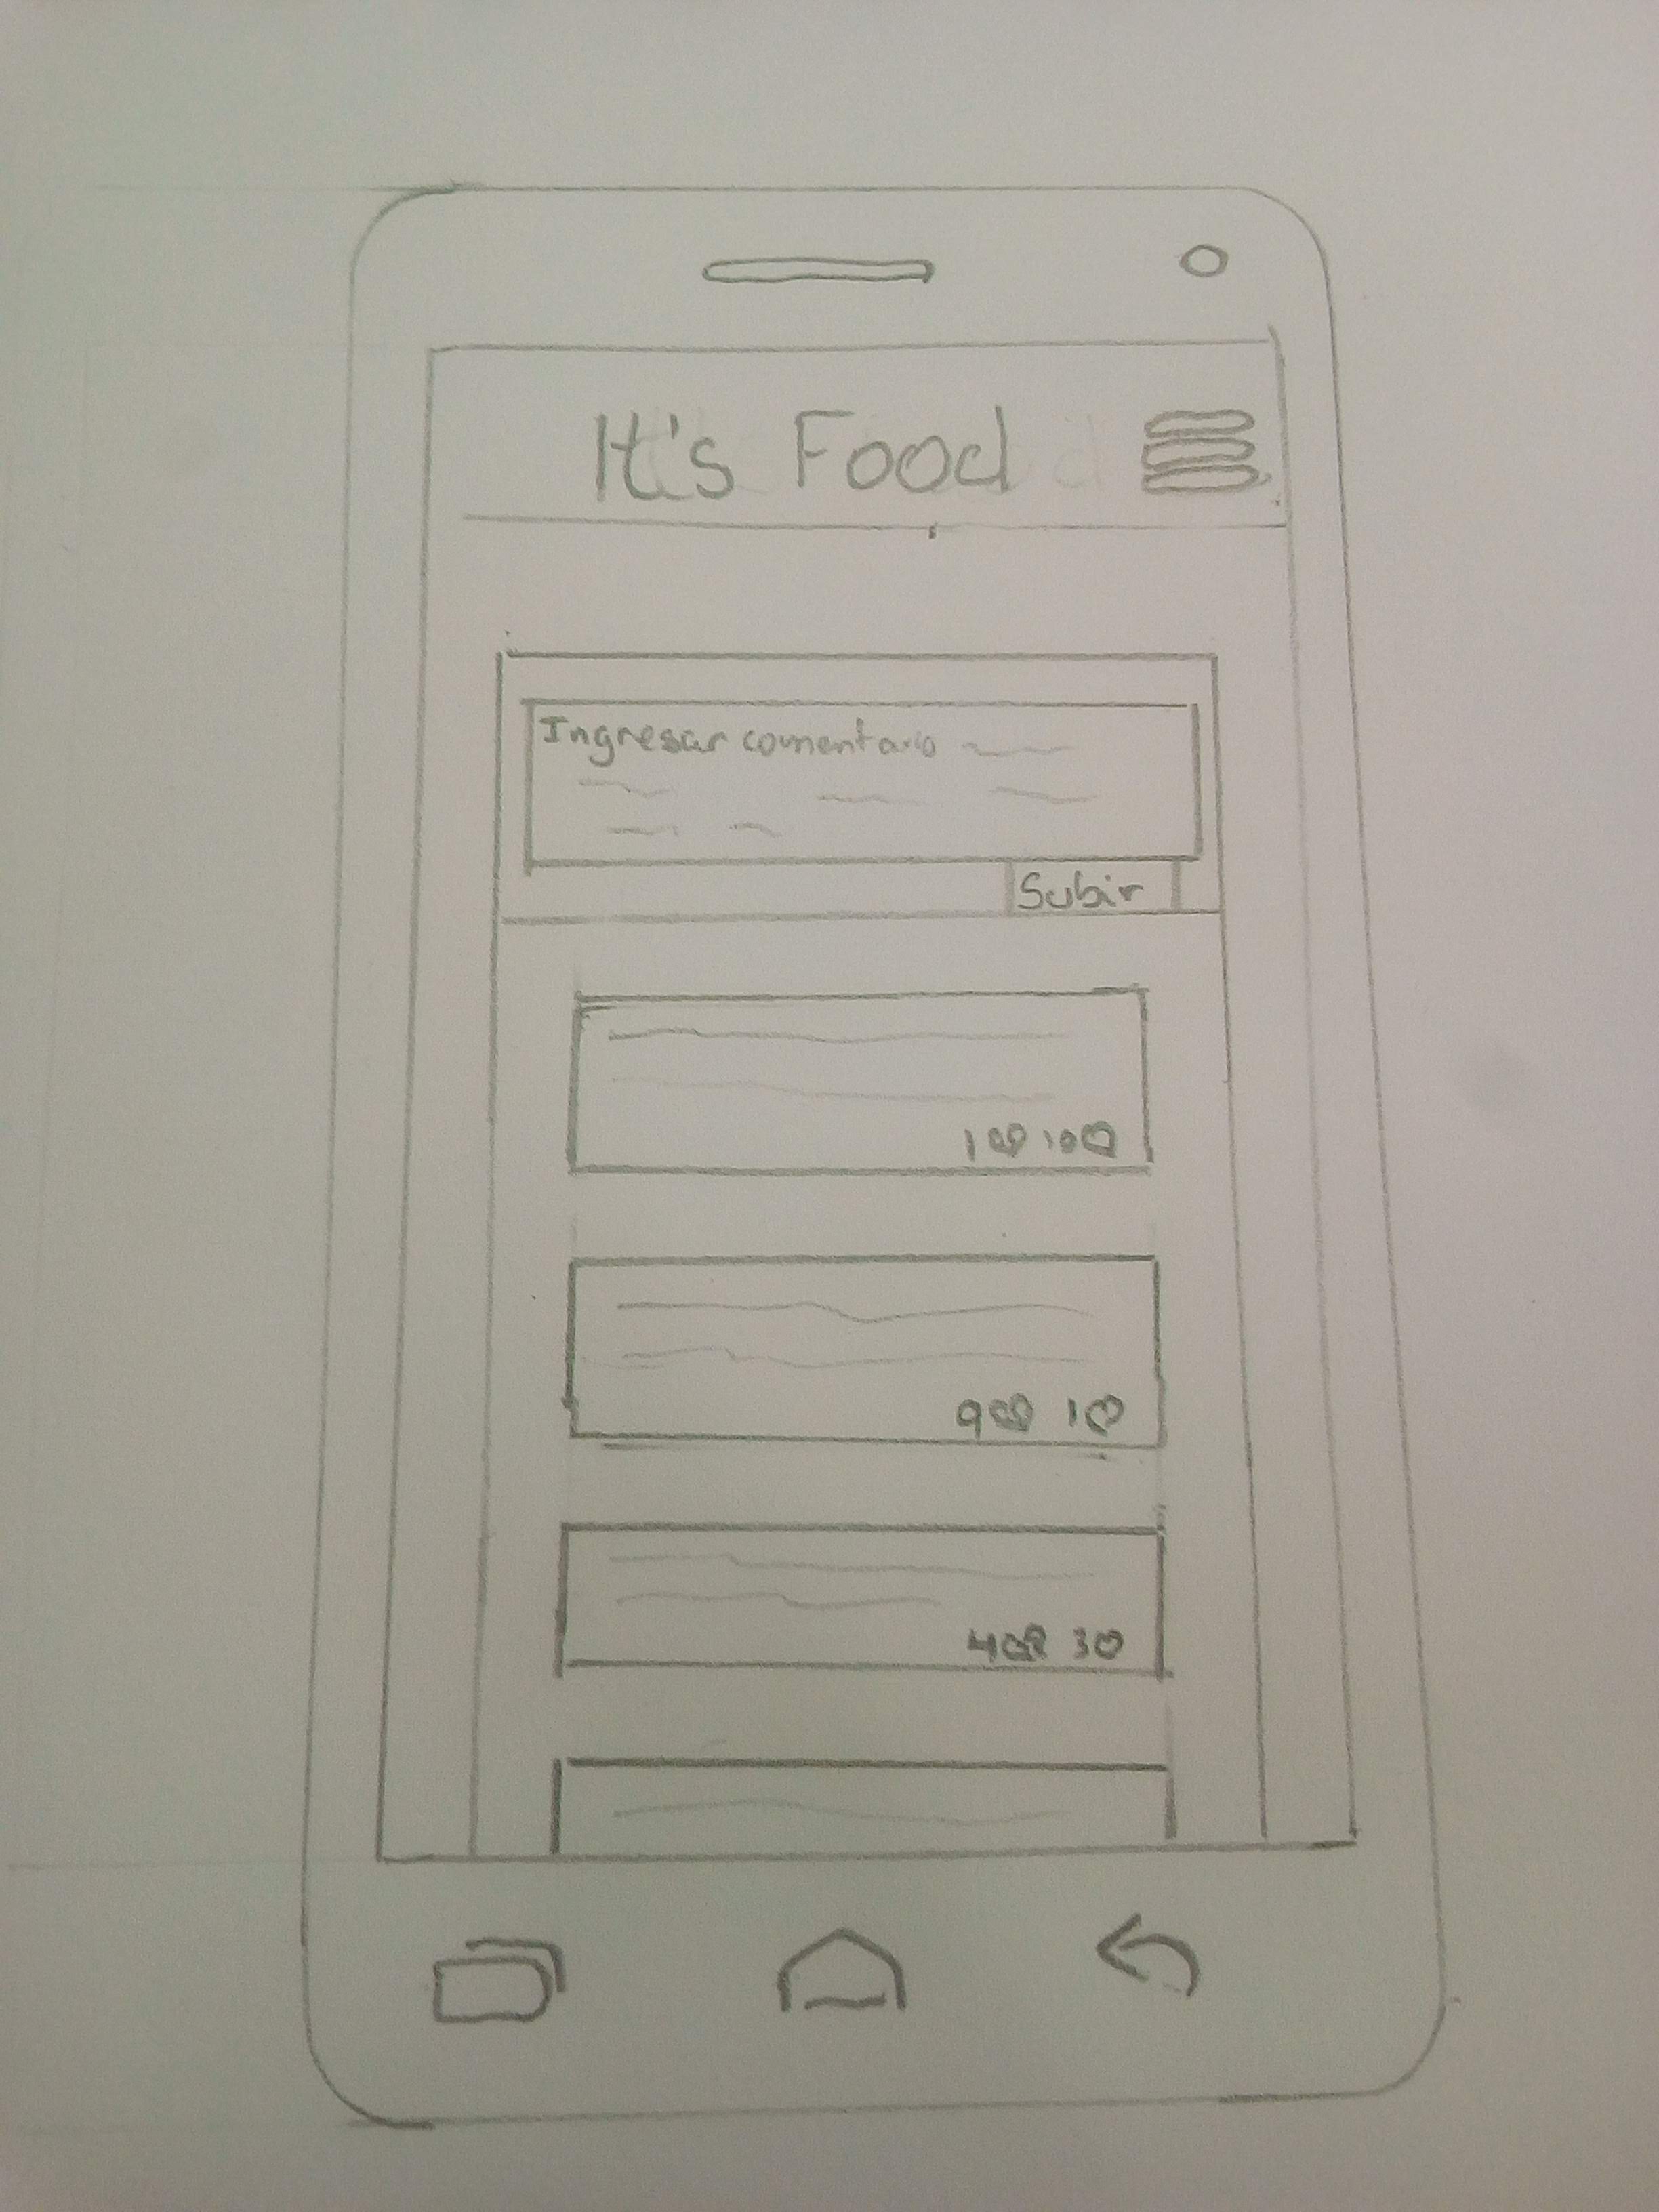 It's Food
Ingresar comentario
Subir
10 10
9 1
4 3